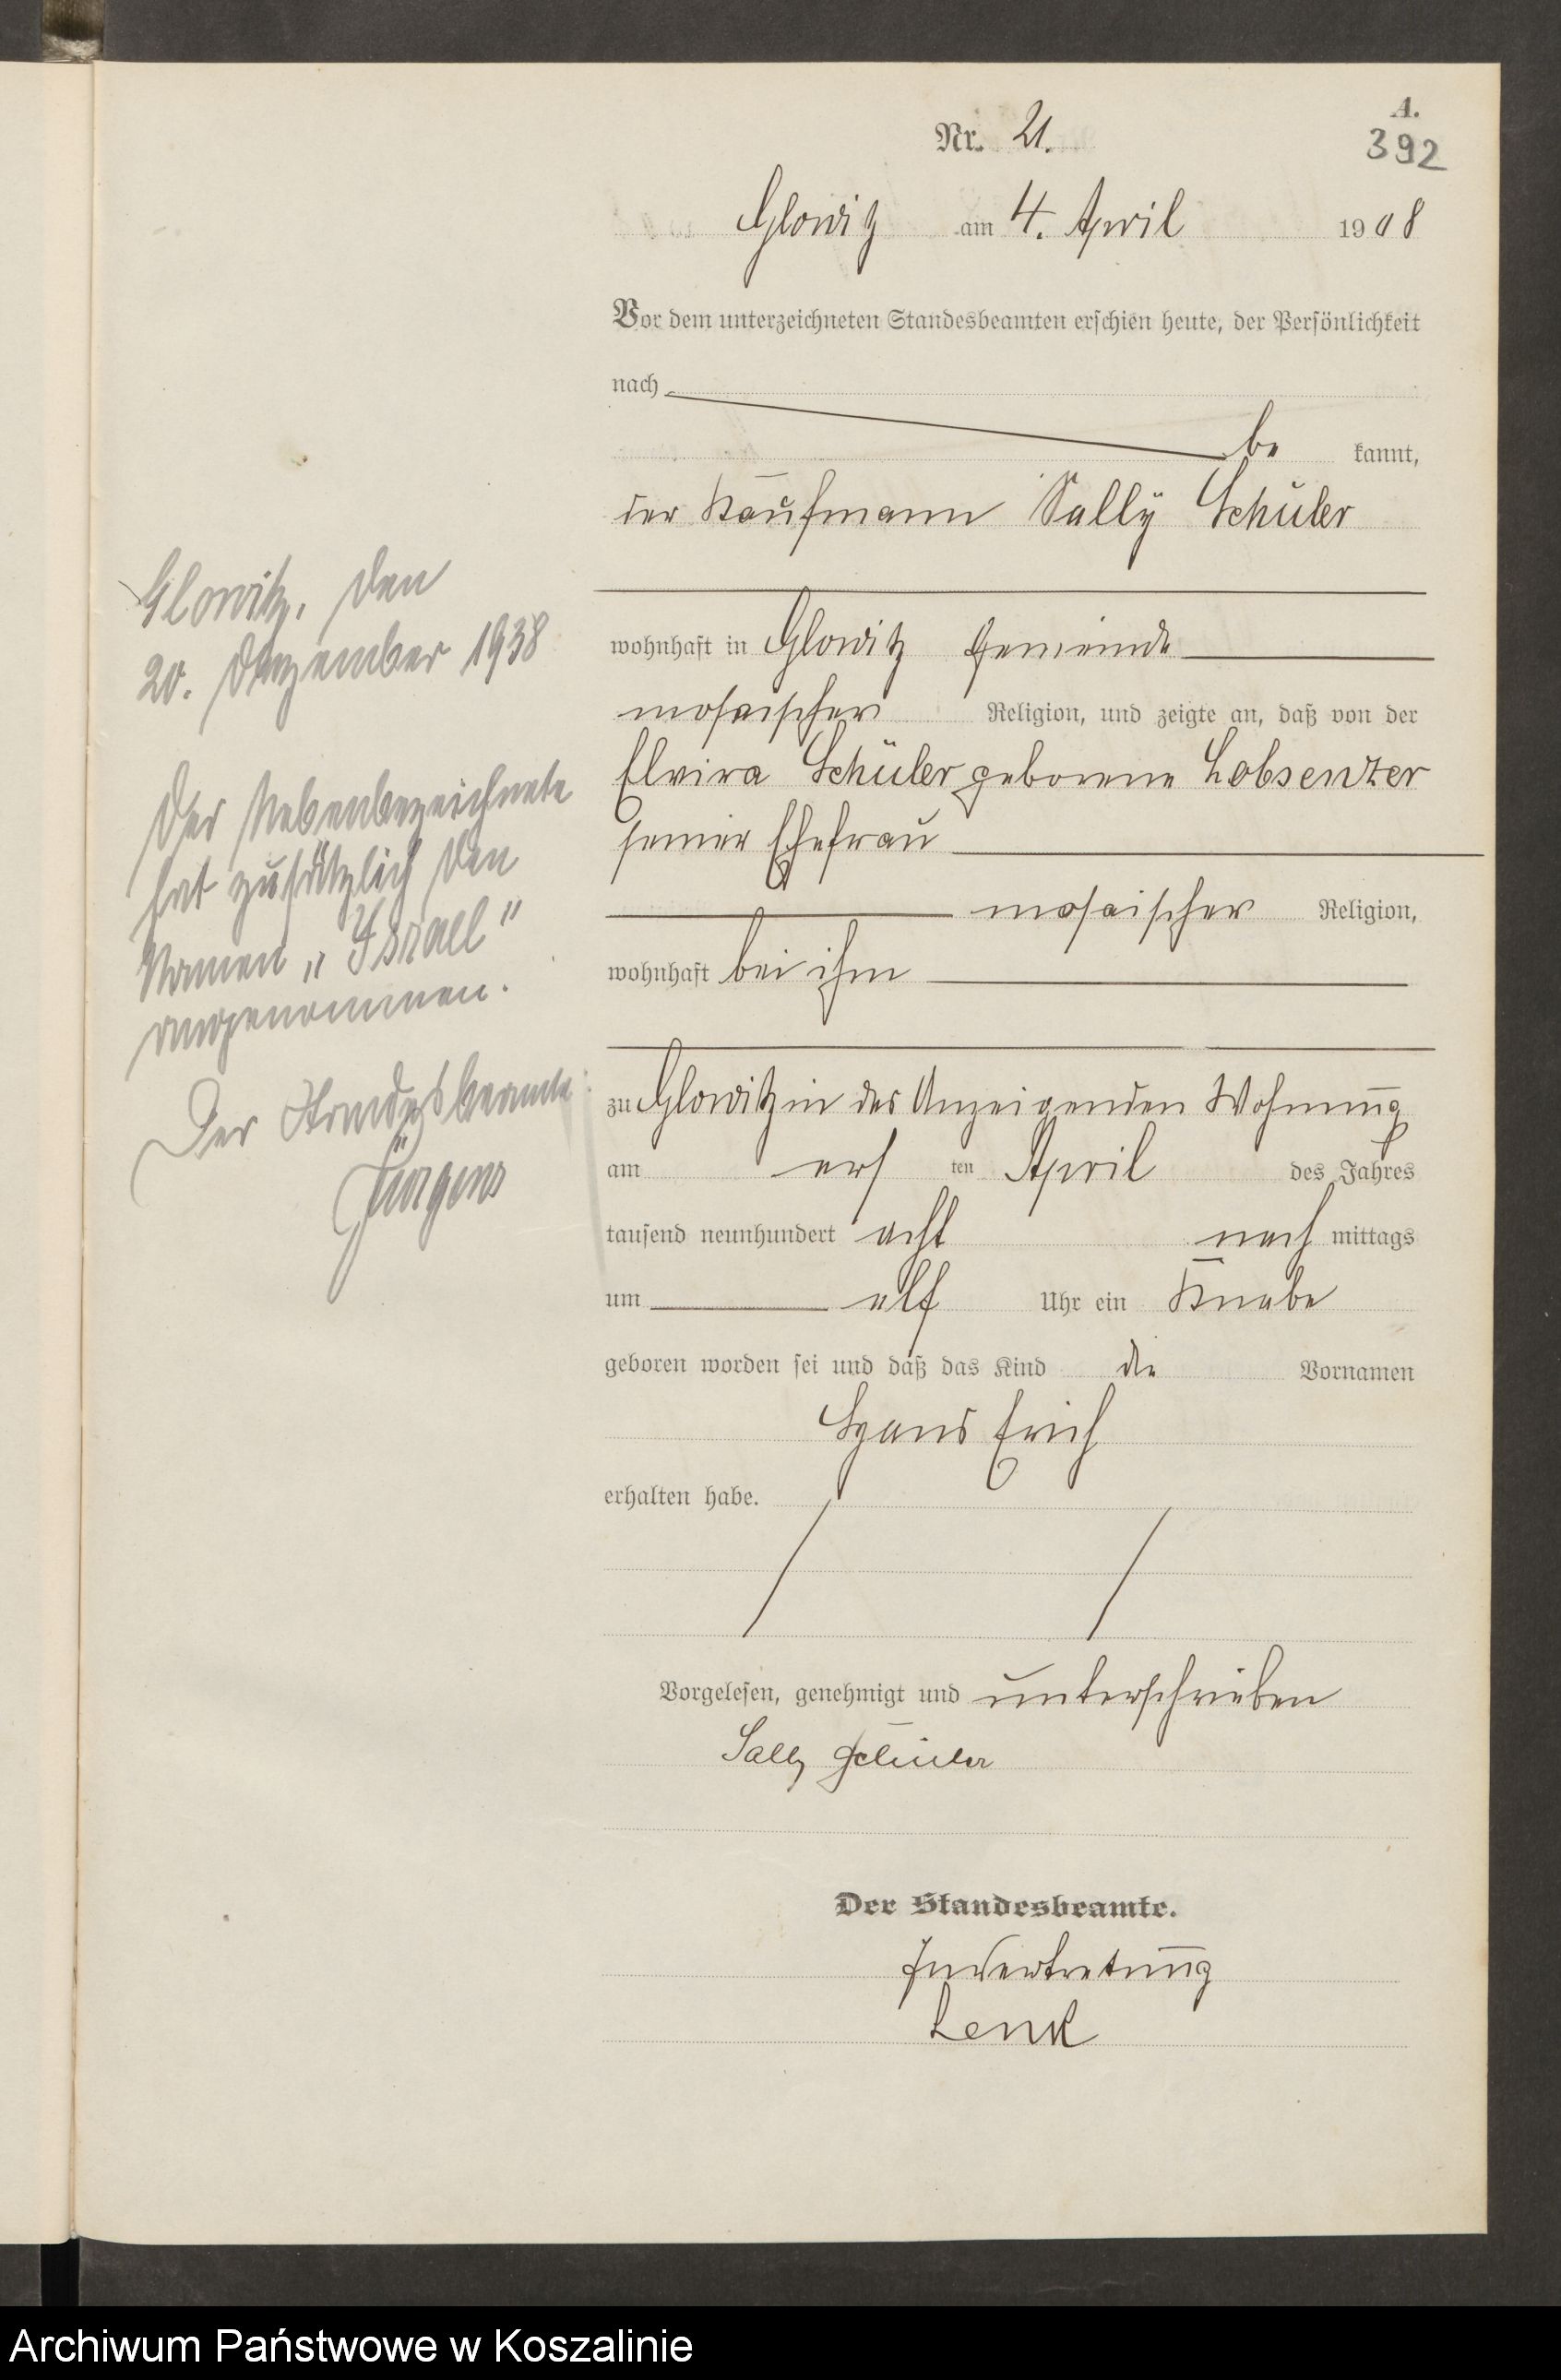 A.
Nr. 21.
392
Glowitz am 4. April 1908
Vor dem unterzeichneten Standesbeamten erschien heute, der Persönlichkeit
nach
be kannt,
der Kaufmann Sally Schüler
wohnhaft in Glowitz Gemeinde
mosaischer Religion, und zeigte an, daß von der
Elvira Schüler geborene Lobsenzer
seiner Ehefrau
mosaischer Religion,
wohnhaft bei ihm
zu Glowitz in des Anzeigenden Wohnung
am ers ten April des Jahres
tausend neunhundert acht nach mittags
um elf Uhr ein Knabe
geboren worden sei und daß das Kind die Vornamen
Hans Erich
erhalten habe.
Vorgelesen, genehmigt und unterschrieben
Sally Schüler
Der Standesbeamte.
In Vertretung
Lenk
Glowitz, den
20. Dezember 1938
Der Nebenbezeichnete
hat zusätzlich den
Namen „Israel"
angenommen.
Der Standesbeamte:
Jürgens
Archiwum Państwowe w Koszalinie